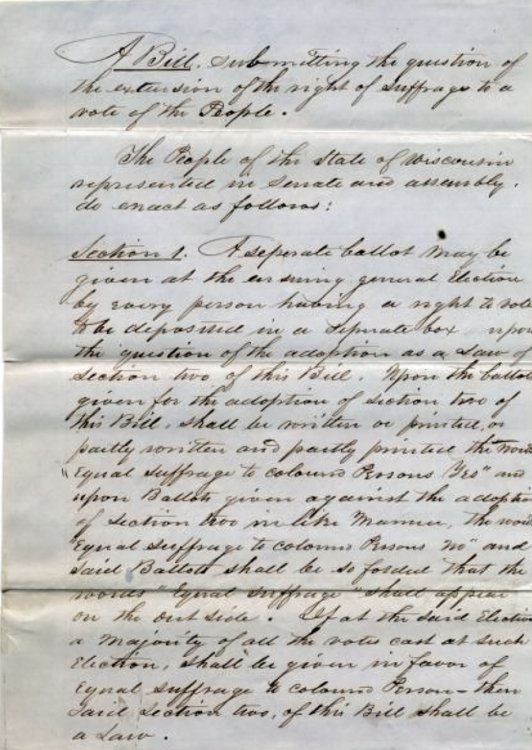 A Bill. submitting the question of
the extension of the right of suffrage to a
vote of the People.
The People of the State of Wisconsin
represented in Senate and assembly.
do enact as follows:
Section 1. A seperate ballot may be
given at the ensuing general Election
by every person having a right to vote
to be deposited in a seperate box upon
the question of the adoption as a Law of
Section two of this Bill. Upon the ballots
given for the adoption of section two of
this Bill, shall be written or printed, or
partly written and partly printed the words
"Equal suffrage to colored Persons Yes" and
upon Ballots given against the adopti
of section two in like manner, the words
"Equal suffrage to colored Persons no" and
said Ballots shall be so folded that the
words "Equal suffrage" shall appear
on the out side. If at the said Election
a majority of all the votes cast at such
Election, shall be given in favor of
Equal suffrage to colored Person - then
said section two, of this Bill shall be
a Law.